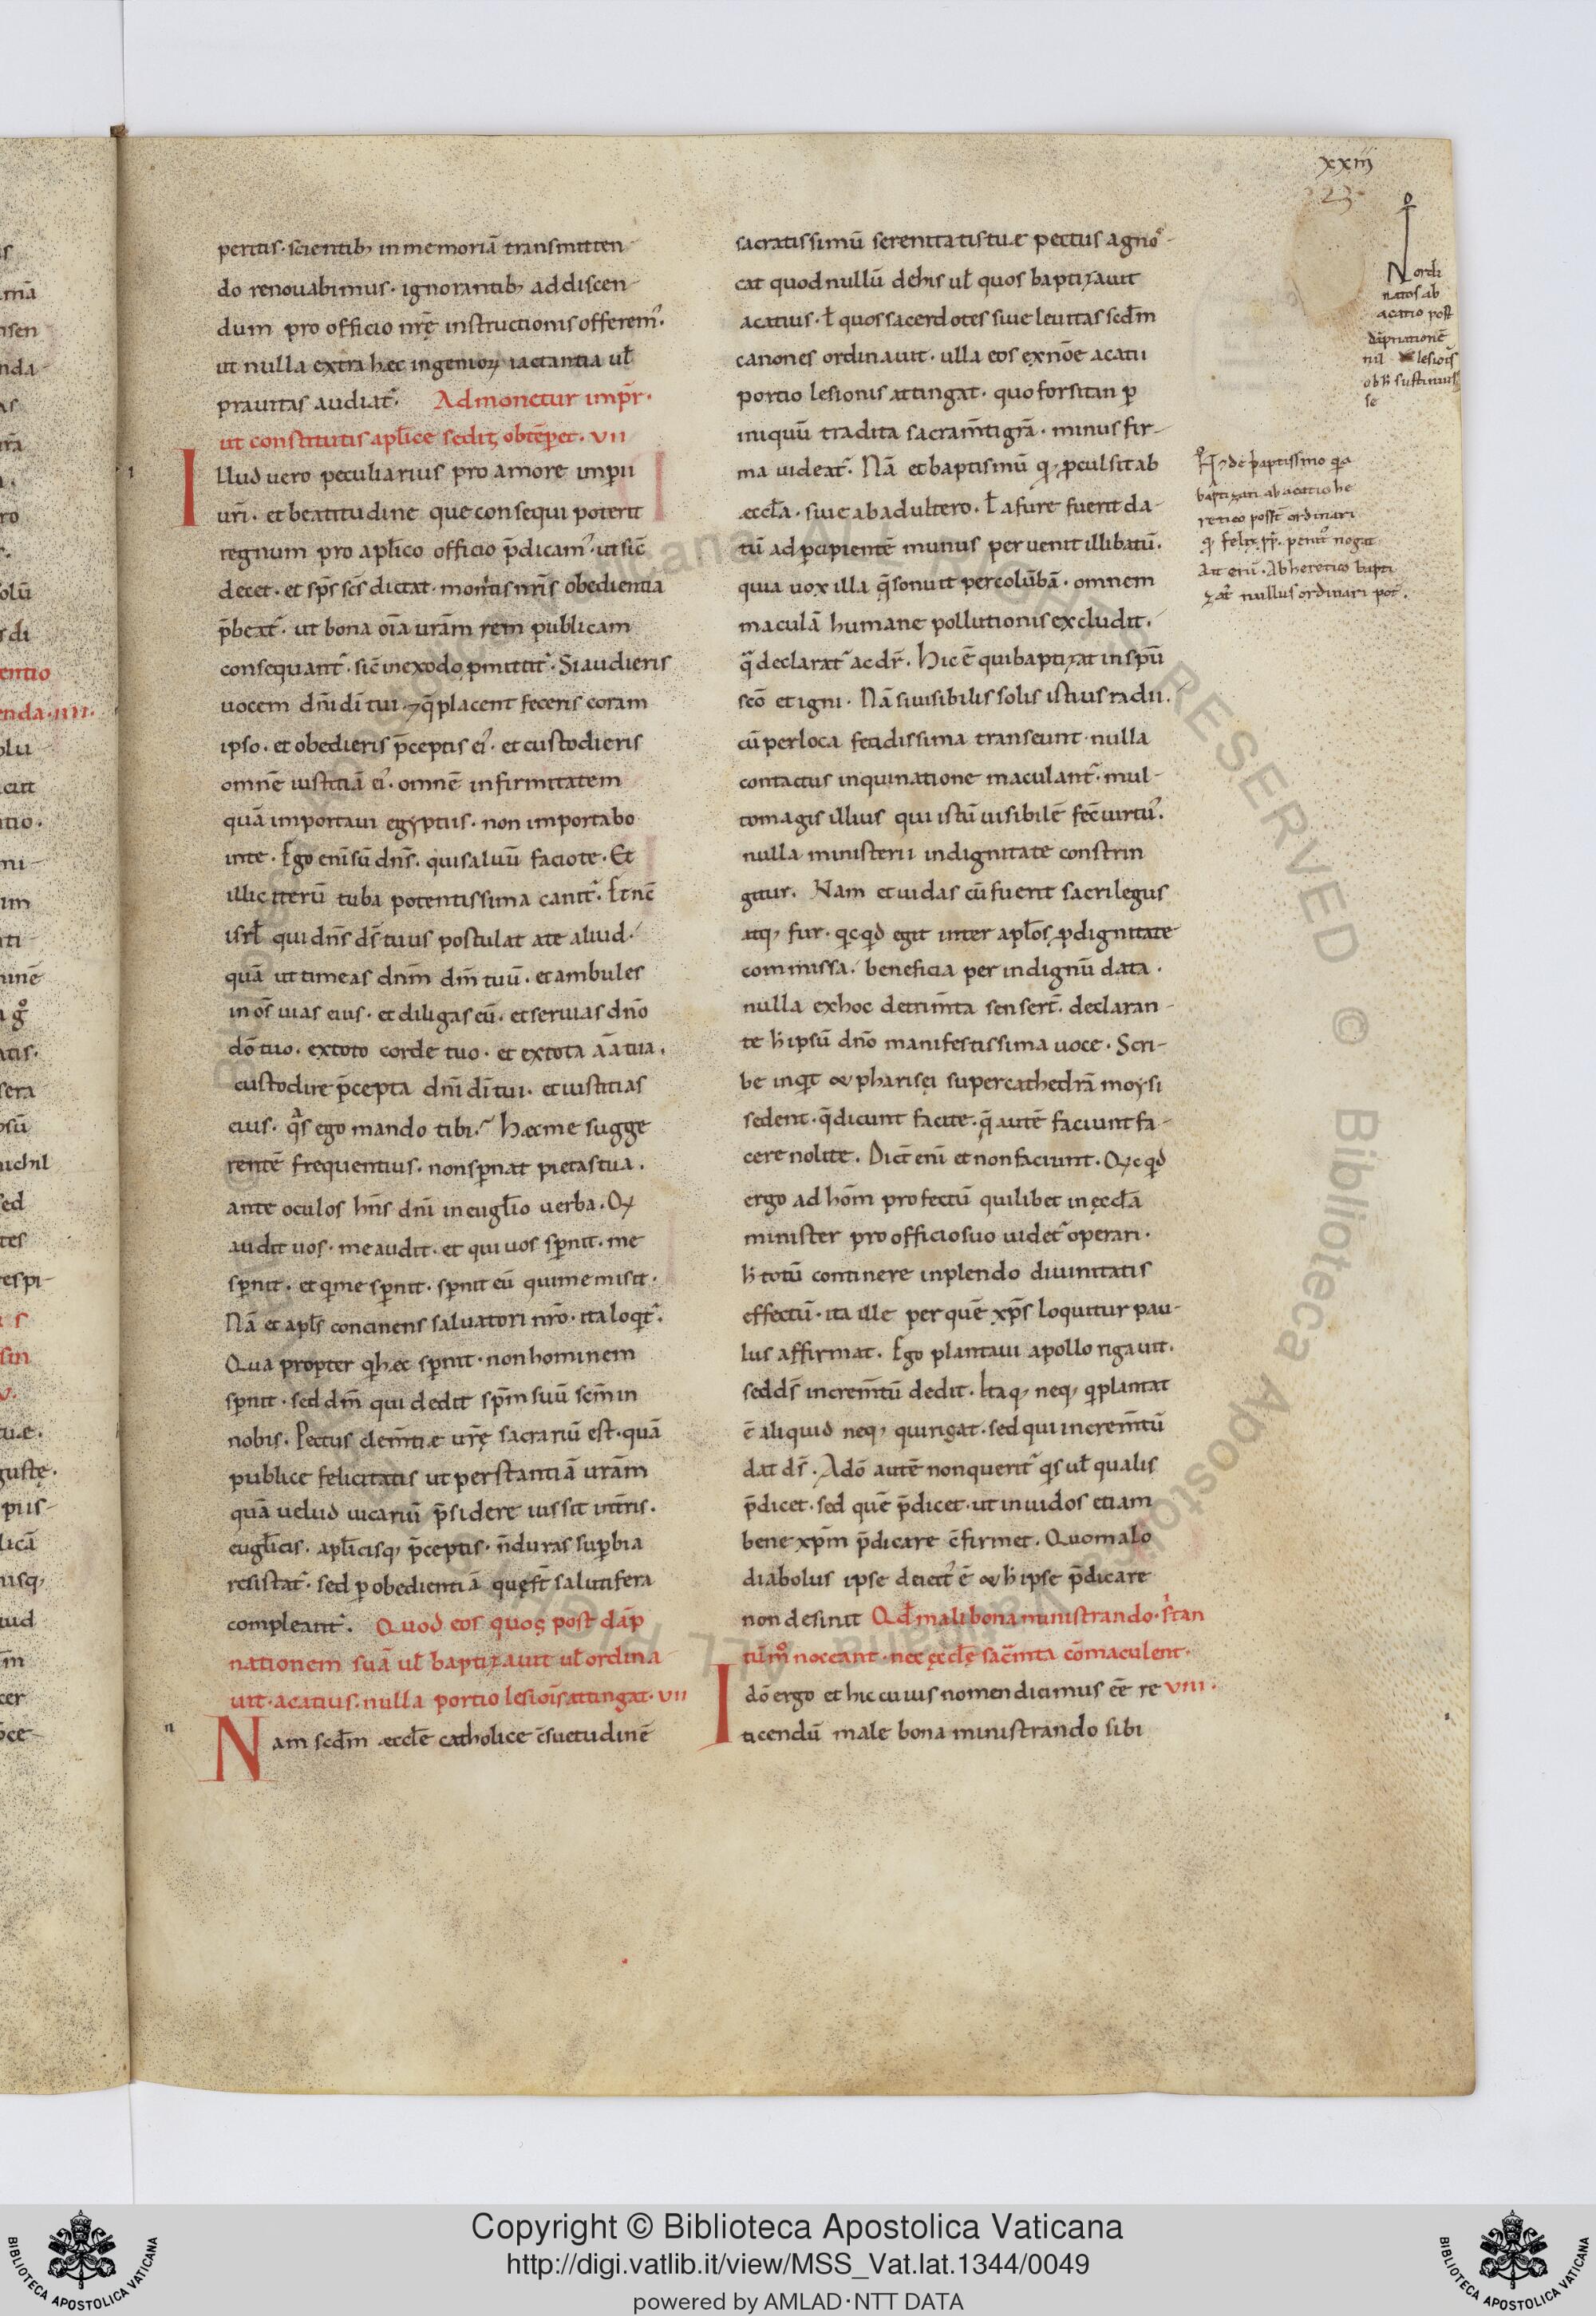 xxiij
23
peritis· scientibꝫ in memoriā transmitten-
do renouabimus· ignorantibꝫ addiscen-
dum pro officio nrę̄ instructionis offerem᾽.
ut nulla extra hæc ingenioꝝ iactantia ul̄
prauitas audiat᾽. Admonetur imp̄r·
ut constitutis apl̄ice sedis obtēperet· VII
Illud uero peculiarius pro amore imperii
uri· et beatitudine que consequi poterit
regnum pro apl̄ico officio p̄dicam᾽· ut sic̄
decet· et sp̄s sc̄s dictat· monitis nr̄is obedientia
p̄beat᾽· ut bona oīa urām rem publicam
consequant᾽· sic̄ in exodo promittit᾽· Si audieris
uocem dn̄i dī tui· ⁊ q̄ placent feceris coram
ipso· et obedieris p̄ceptis ei᾽· et custodieris
omnē iustitiā ei᾽· omnē infirmitatem
quā importaui egyptiis· non importabo
in te· Ego enī sū dn̄s· qui saluū facio te· Et
illic iterū tuba potentissima canit᾽· Et nc̄
isrl̄ qui dn̄s ds̄ tuus postulat a te aliud·
quā ut timeas dnm̄ dm̄ tuū· et ambules
in os̄ uias eius· et diligas eū· et seruias dn̄o
dō tuo· ex toto corde tuo· et ex tota āa tua·
custodire p̄cepta dn̄i dī tui· et iustitias
eius· qͣs ego mando tibi· Hæc me sugge
rentē frequentius· non spernat pietas tua·
ante oculos hn̄s dn̄i in eugl̄io uerba· Qꝫ
audit uos· me audit· et qui uos spernit· me
spernit· et qͥ me spernit· spernit eū qui me misit·
Nā et apl̄s concinens saluatori nrō· ita loqͥt᾽·
Qua propter qͥ hæc spernit· non hominem
spernit· sed dm̄ qui dedit spm̄ suū scm̄ in
nobis· Pectus clem̄tiæ urę̄ sacrariū est· quā
publice felicitatis ut per stantiā urām
quā uelud uicariū p̄sidere iussit int̄ris·
eugl̄icis· apl̄icisqꝫ p̄ceptis· n̄ duras superbia
resistat᾽· sed per obedientiā que st̄ salutifera
compleant᾽. Quod eos quos post dāp
nationem suā ul̄ baptizauit ul̄ ordina
uit· acatius· nulla portio lesioīs attingat· VII
Nam scd̄m æccle᷎ catholice c̄suetudinē
sacratissimū serenitatis tuæ pectus agnos-
cat quod nullū de his ul̄ quos baptizauit
acatius· ł quos sacerdotes siue leuitas scd̄m
canones ordinauit· ulla eos ex nōe acatii
portio lesionis attingat· quo forsitan per
iniquū tradita sacram̄ti gr̄a· minus fir-
ma uideat᾽· Nā et baptismū qꝫ procul sit ab
æccl̄a· siue ab adultero· ł a fure fuerit da-
tū ad percipientē munus per uenit illibatū·
quia uox illa q̄ sonuit per colūbā· omnem
maculā humane pollutionis excludit·
qͣ declarat᾽ ac dr̄· Hic ē qui baptizat in spū
scō et igni· Nā si uisibilis solis istius radii·
cū per loca fetidissima transeunt· nulla
contactus inquinatione maculant᾽· mul-
to magis illius qui istū uisibilē fec̄ uirtu᾽·
nulla ministerii indignitate constrin
gitur· Nam et iudas cū fuerit sacrilegus
atqꝫ fur· qͥcqͥd egit inter apl̄os pro dignitate
commissa· beneficia per indignū data·
nulla ex hoc detrim̄ta senserт̄· declaran-
te h̄ ipsū dn̄o manifestissima uoce· Scri-
be inqͥt & pharisęi super cathedrā moysi
sedent· q̄ dicunt facite· q̄ autē faciunt fa-
cere nolite· Dicт̄ enī et non faciunt· Qͥcqͥd
ergo ad hōm profectū quilibet in ęccl̄a
minister pro officio suo uidet᾽ operari·
h̄ totū continere inplendo diuinitatis
effectū· ita ille per quē xp̄s loquitur pau-
lus affirmat· Ego plantaui apollo rigauit·
sed ds̄ increm̄tū dedit· Itaqꝫ neqꝫ qͥ plantat
ē aliquid neqꝫ qui rigat· sed qui increm̄tū
dat ds̄· Adō autē non querit᾽ qͥs ul̄ qualis
p̄dicet· sed quē p̄dicet· ut inuidos etiam
bene xpm̄ p̄dicare c̄firmet· Quo malo
diabolus ipse deiect᾽ ē & h̄ ipse p̄dicare
non desinit Qd̄ mali bona ministrando· s᾽ tan
tūmº noceant· nec ęccle᷎ sac̄mta cōmaculent·
Idō ergo et hic cuius nomen dicimus eē re VIII·
ticendū male bona ministrando sibi
Nordi
natos ab
acatio post
dāpnationē
nil lesiois
ob h̄ sustinuis
se
de baptissmo qͥa
baptizati ab acatio he
retico possт̄ ordinari
qͥ felix pp̄· penit᾽ nogat
Ait enī· Ab heretico bapti
zat᾽ nullus ordinari pot̄·
Copyright © Biblioteca Apostolica Vaticana
http://digi.vatlib.it/view/MSS_Vat.lat.1344/0049
powered by AMLAD·NTT DATA